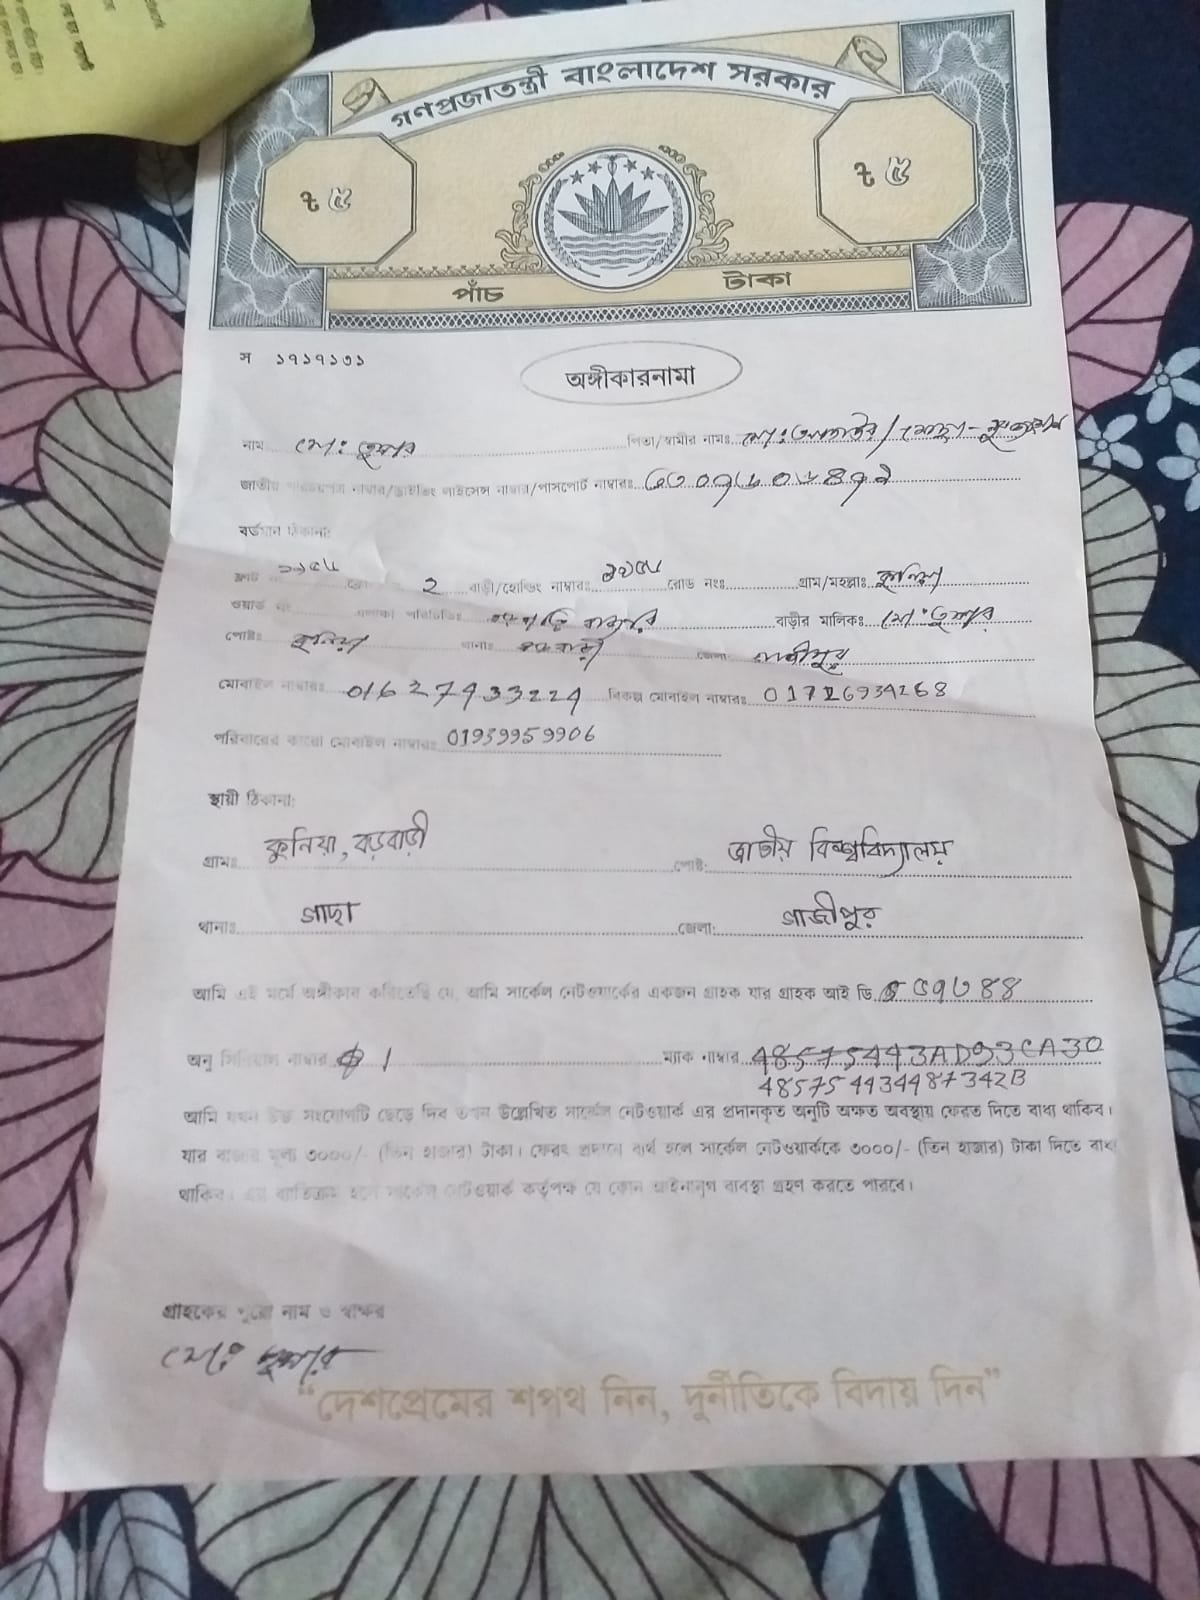 গণপ্রজাতন্ত্রী বাংলাদেশ সরকার
৳ ৫ ৳ ৫
পাঁচ টাকা
স ১৭১৭১৩১
অঙ্গীকারনামা
নাম মো: তুষার পিতা/স্বামীর নামঃ মো:
জাতীয় পরিচয়পত্র নাম্বার/ড্রাইভিং লাইসেন্স নাম্বার/পাসপোর্ট নাম্বারঃ
বর্তমান ঠিকানা:
ফ্লাট নং ২ বাড়ী/হোল্ডিং নাম্বারঃ রোড নংঃ গ্রাম/মহল্লাঃ কুনিয়া
ওয়ার্ড নং এলাকা পরিচিতিঃ বাড়ীর মালিকঃ মো: তুষার
পোষ্টঃ কুনিয়া থানাঃ জেলা: গাজীপুর
মোবাইল নাম্বারঃ 01627433224 বিকল্প মোবাইল নাম্বারঃ 01726934268
পরিবারের কারো মোবাইল নাম্বারঃ 01959959906
স্থায়ী ঠিকানা:
গ্রামঃ কুনিয়া, বড়বাড়ী পোষ্ট: জাতীয় বিশ্ববিদ্যালয়
থানাঃ গাছা জেলা: গাজীপুর
আমি এই মর্মে অঙ্গীকার করিতেছি যে, আমি সার্কেল নেটওয়ার্কের একজন গ্রাহক যার গ্রাহক আই ডি
অনু সিরিয়াল নাম্বার 1 ম্যাক নাম্বার 485754443AD93CA30
485754434487342B
আমি যখন উক্ত সংযোগটি ছেড়ে দিব তখন উল্লেখিত সার্কেল নেটওয়ার্ক এর প্রদানকৃত অনুটি অক্ষত অবস্থায় ফেরত দিতে বাধ্য থাকিব।
যার বাজার মূল্য ৩০০০/- (তিন হাজার) টাকা। ফেরৎ প্রদানে ব্যর্থ হলে সার্কেল নেটওয়ার্ককে ৩০০০/- (তিন হাজার) টাকা দিতে বাধ্য
থাকিব। এর ব্যতিক্রম হলে সার্কেল নেটওয়ার্ক কর্তৃপক্ষ যে কোন আইনানুগ ব্যবস্থা গ্রহণ করতে পারবে।
গ্রাহকের পুরো নাম ও স্বাক্ষর
মো: তুষার
“দেশপ্রেমের শপথ নিন, দুর্নীতিকে বিদায় দিন”